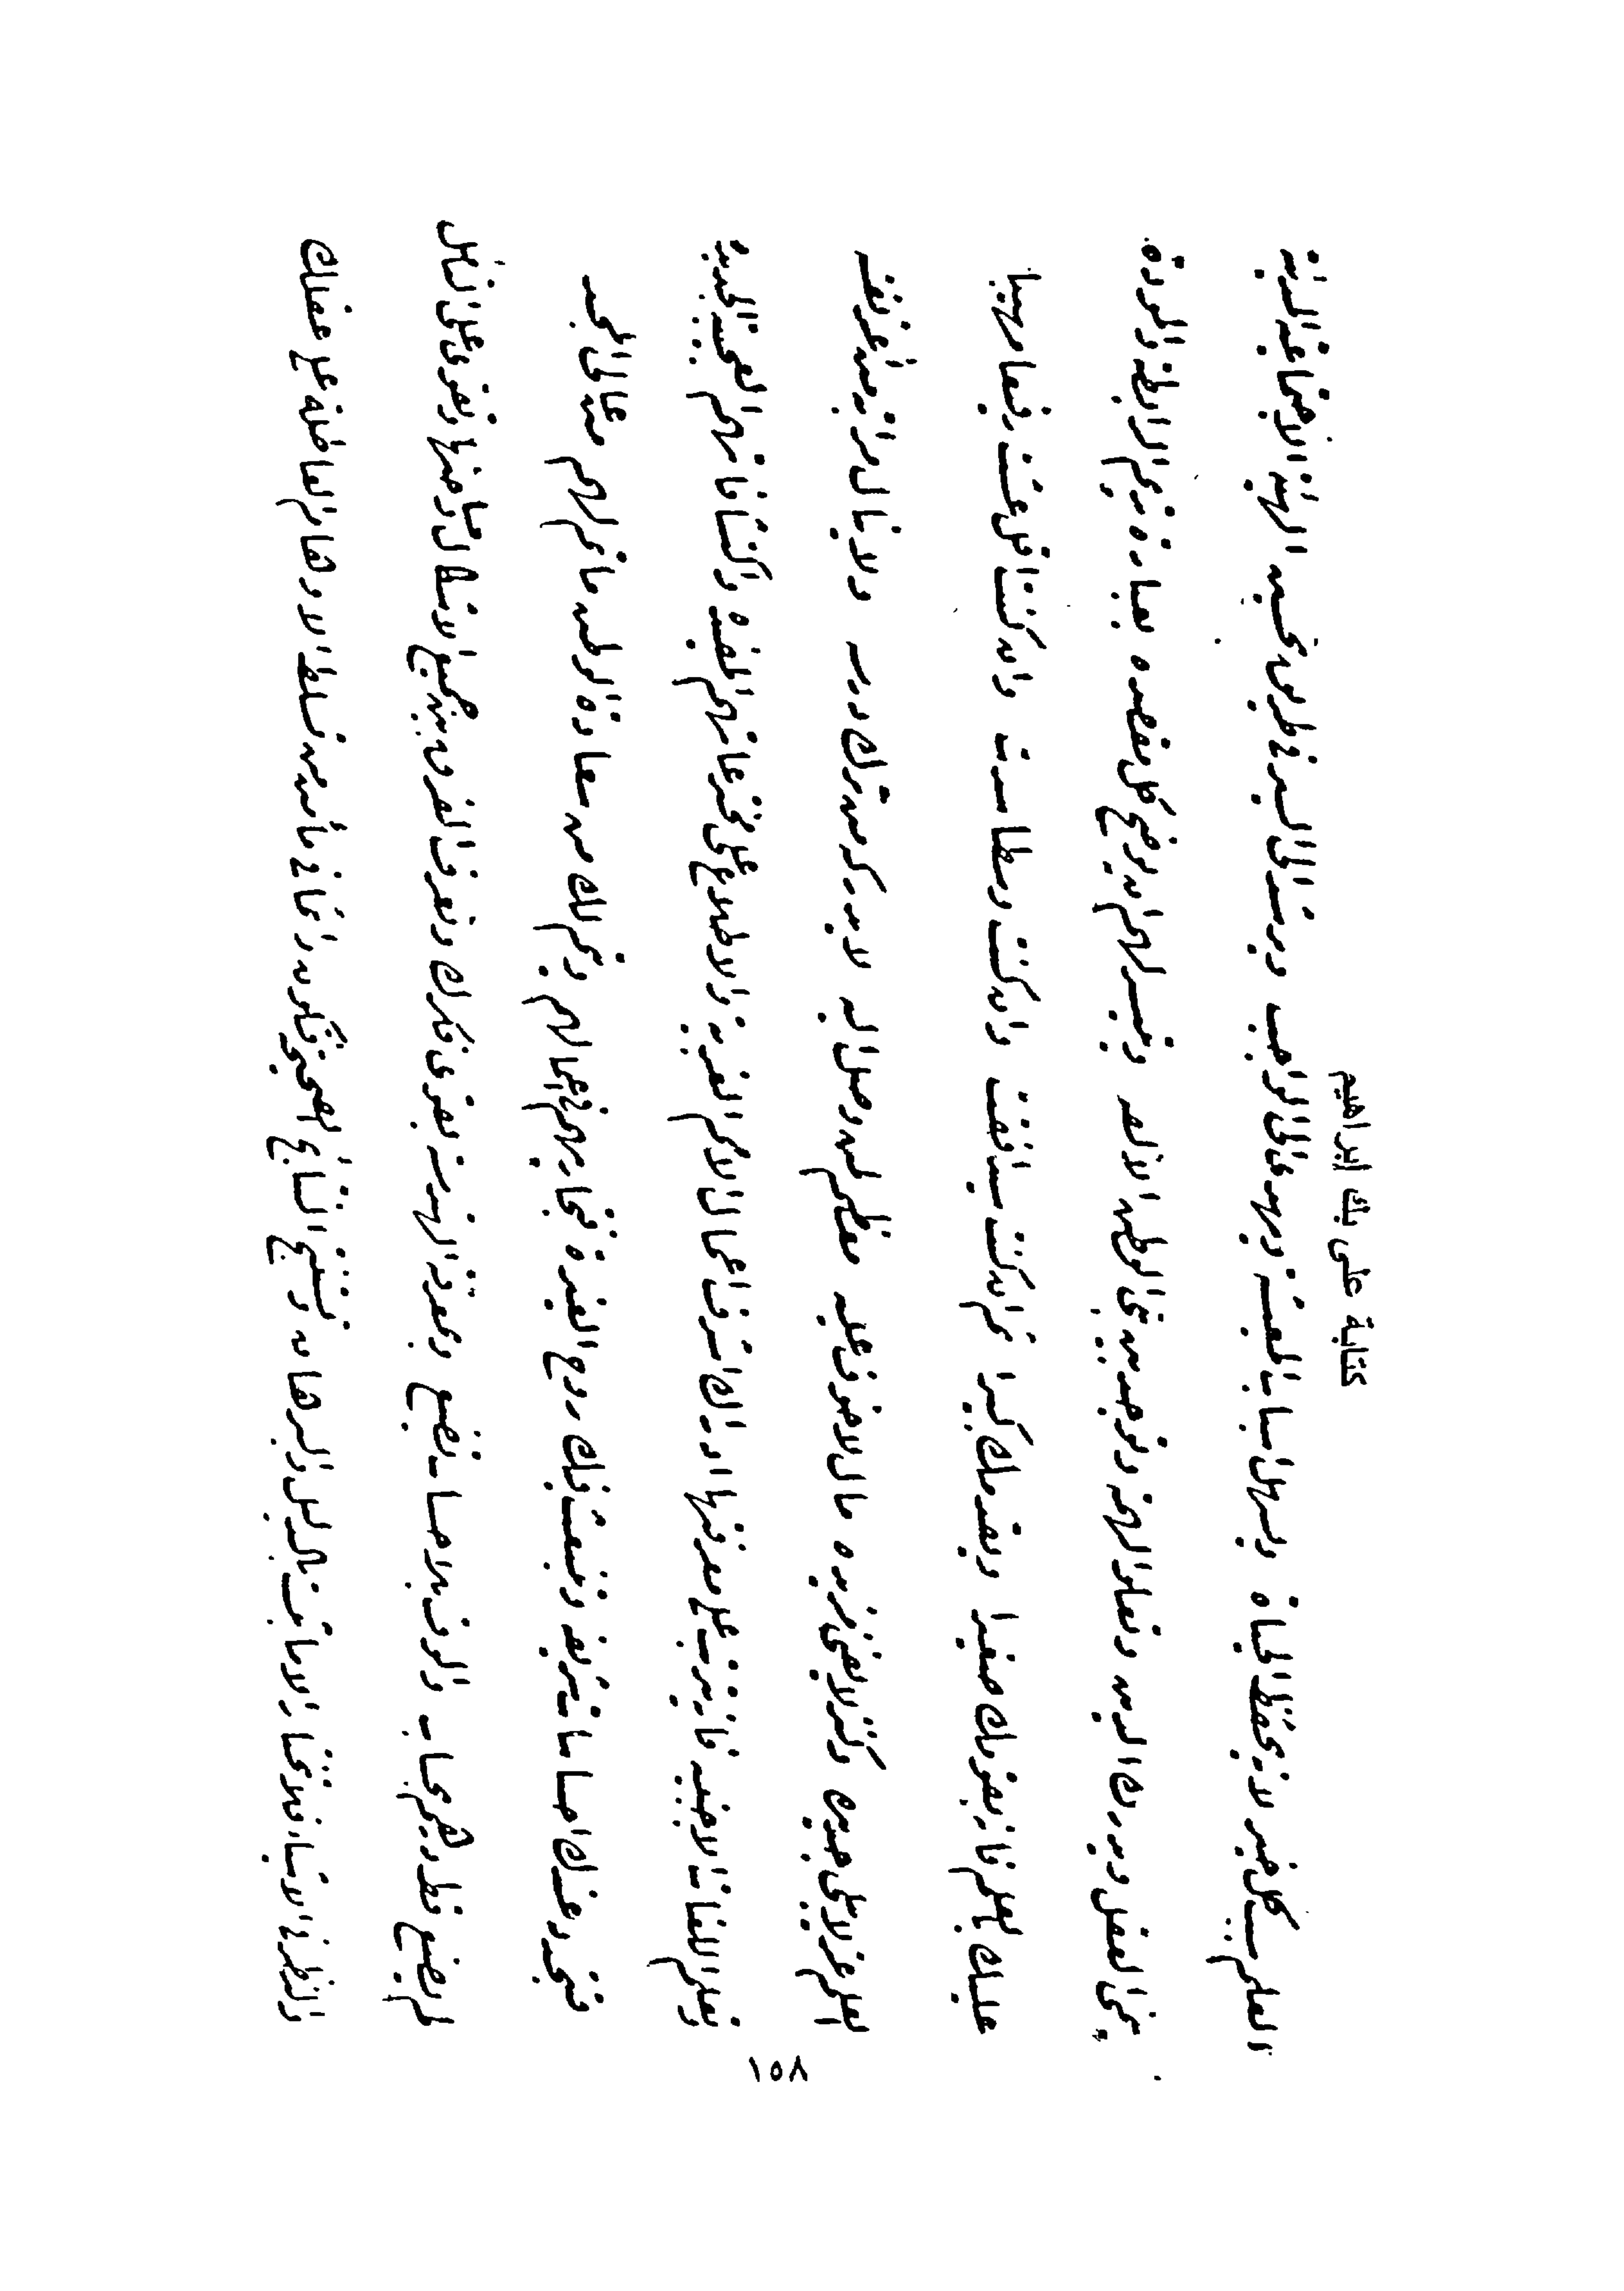 كتابة على بك ابراهيم
العلم سبب كل خير لانه يحفظ الحياة ويسهل اسباب المعيشة ويهدى الى الواجب ويرشد الى السير فى طريق تحسين الهيئة الاجتماعية المدنية
ينمى العقل وينور الدين وتعلو الهمة وتوجد بين بنى الوطن الالفة ويتيسر لهم ان يوضح كل مقصده بعبارة تديم الرابطة والمودة
عليك بالعلم فانه يفوقك صغيرا ويقدمك كبيرا ثم ان كنت سدا فقت وان كنت وسطا سدت وان كنت اقل عشت رفيعا ومهيبا
العلم عز لا يبلى جديده وكنز لا يفنى مزيده مال لا خوف عليه معظم لمن وصل اليه لا يدركه من ترك درسه ولا ينال مراتبه من أعز نفسه
وتعلم اللغات الاجنبيه فانه يترتب على معرفتها ادراك اشرف اعمال الامم الغريبة والاطلاع على مخترعاتهم المفيده واكتشافاتهم العجيبة الجديدة
فتجد عندك احساسات شريفه وتنبعث فيك روح الغيرة فتجاريهم فى اعمالهم ويتم لك من سعادة الوطن ما تم لهم من معالى المجد
لم يضع فطره بحساب والوقت بلا حساب تضيع وبمعرفة الهندسة يقوى فكرك وتعرف الفرق بين جميع الاشكال وخاصيتها وتقوى على التأمل
والنظر فى الاشياء فلا تختار الا ما ثبت بالدليل والبرهان وتستنتج النتائج الصحيح فتكون دائما فى مأمن من تسلط الاوهام الفاضلة على عقلك
١٥٨